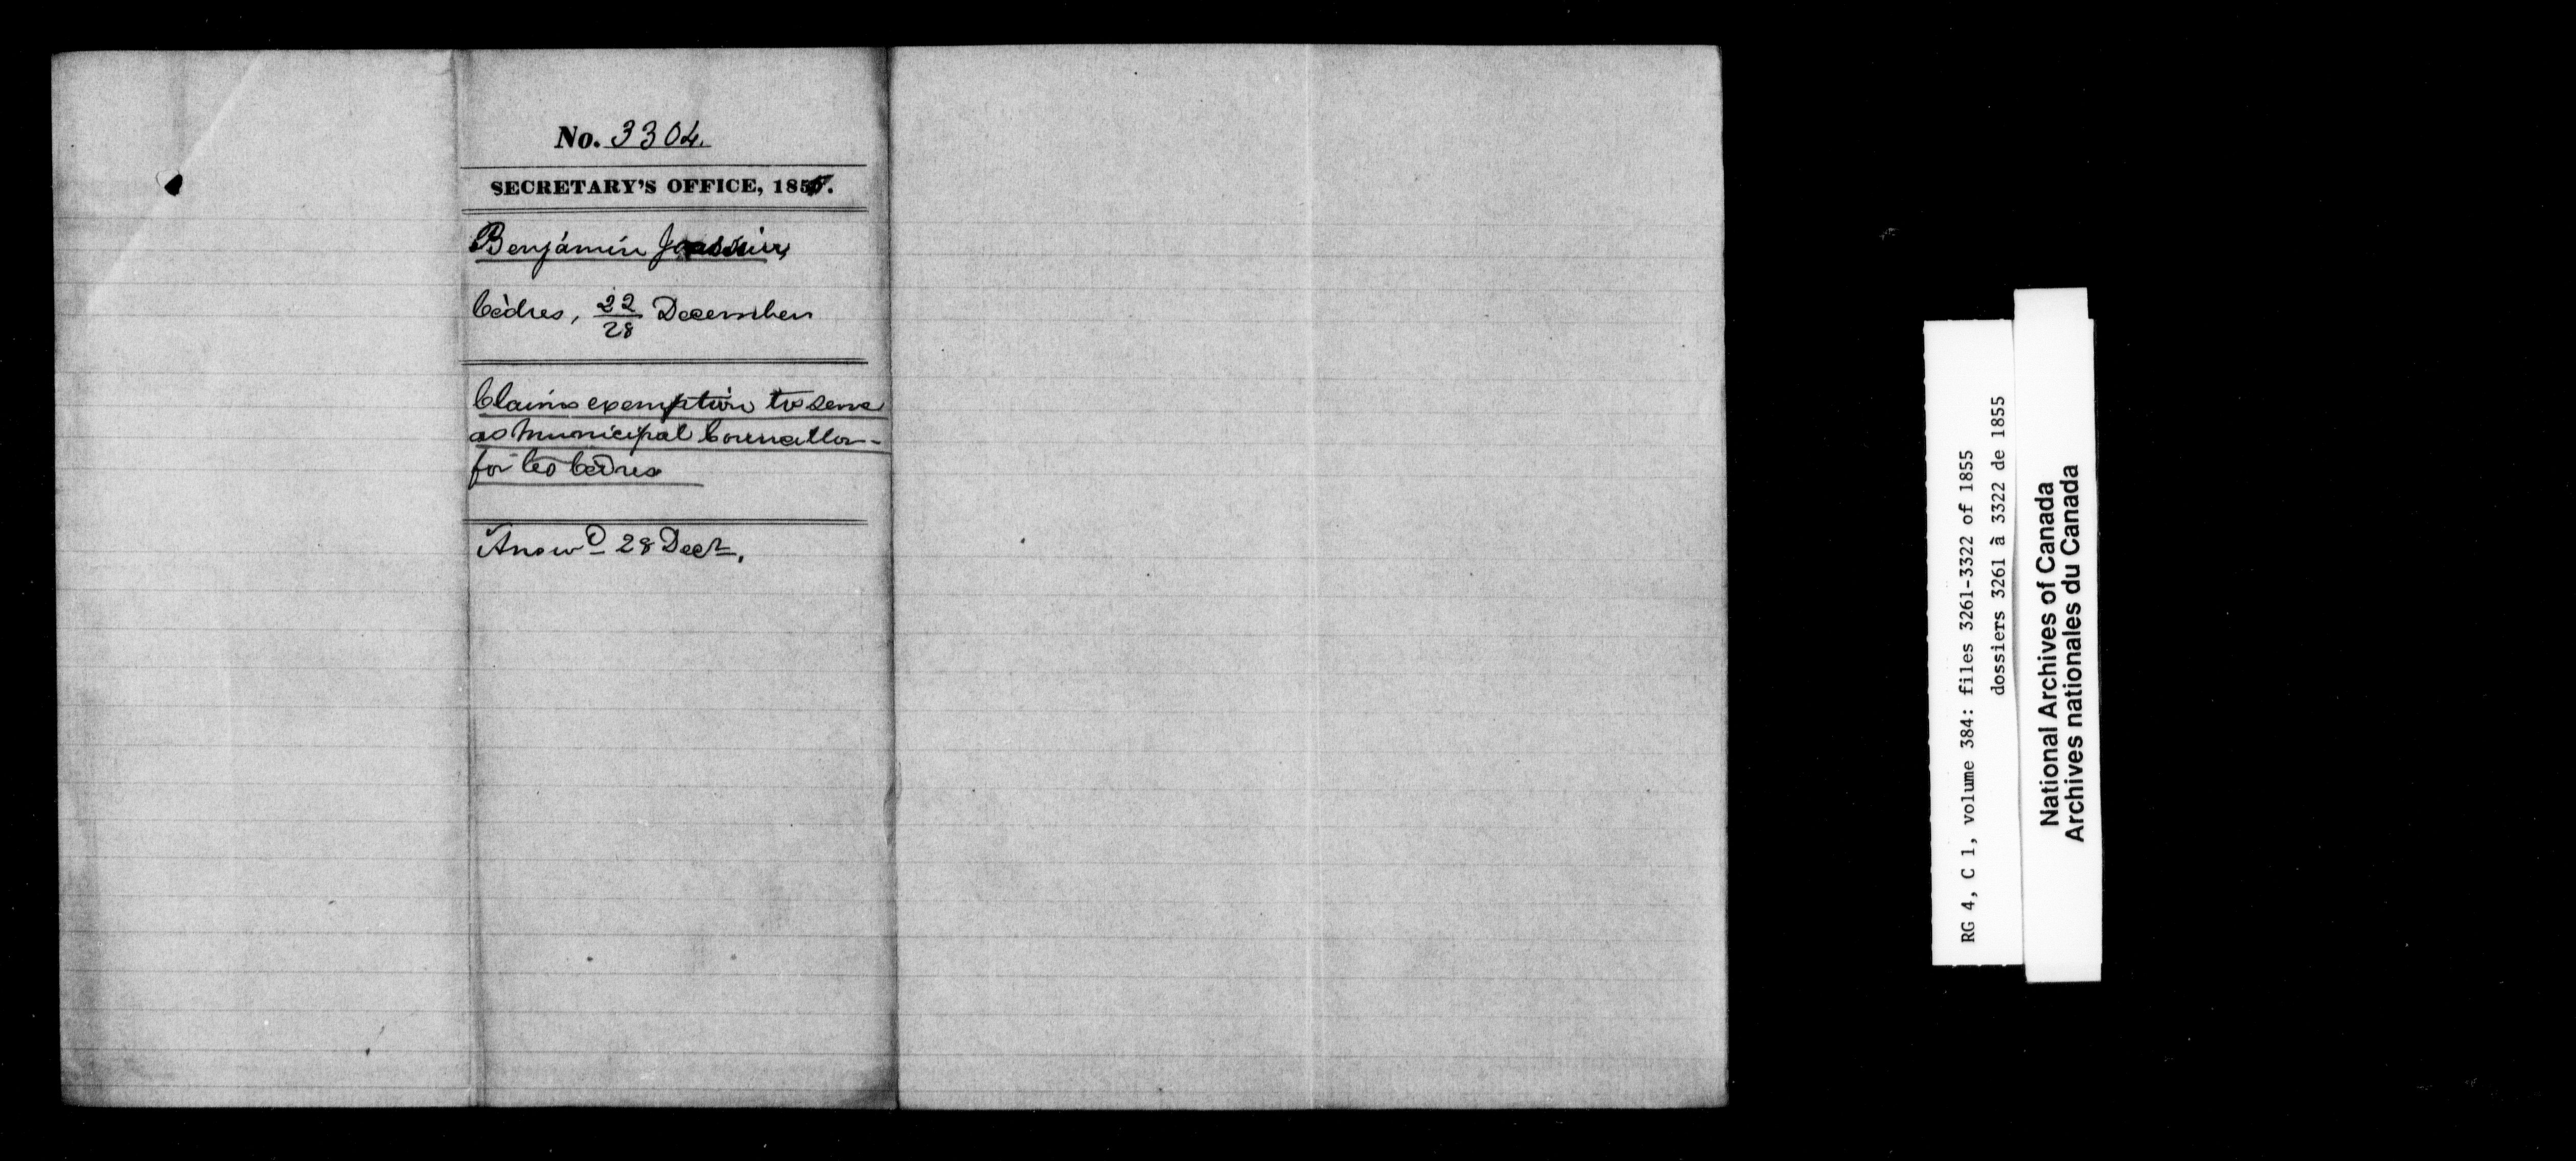 No. 3304.
SECRETARY'S OFFICE, 1855.
Benjamin
Cèdres, 22/28 December
Claims exemption to serve
as Municipal Councillor -
for les Cèdres
Answd 28 Decr.
RG 4, C 1, volume 384: files 3261-3322 of 1855
dossiers 3261 à 3322 de 1855
National Archives of Canada
Archives nationales du Canada